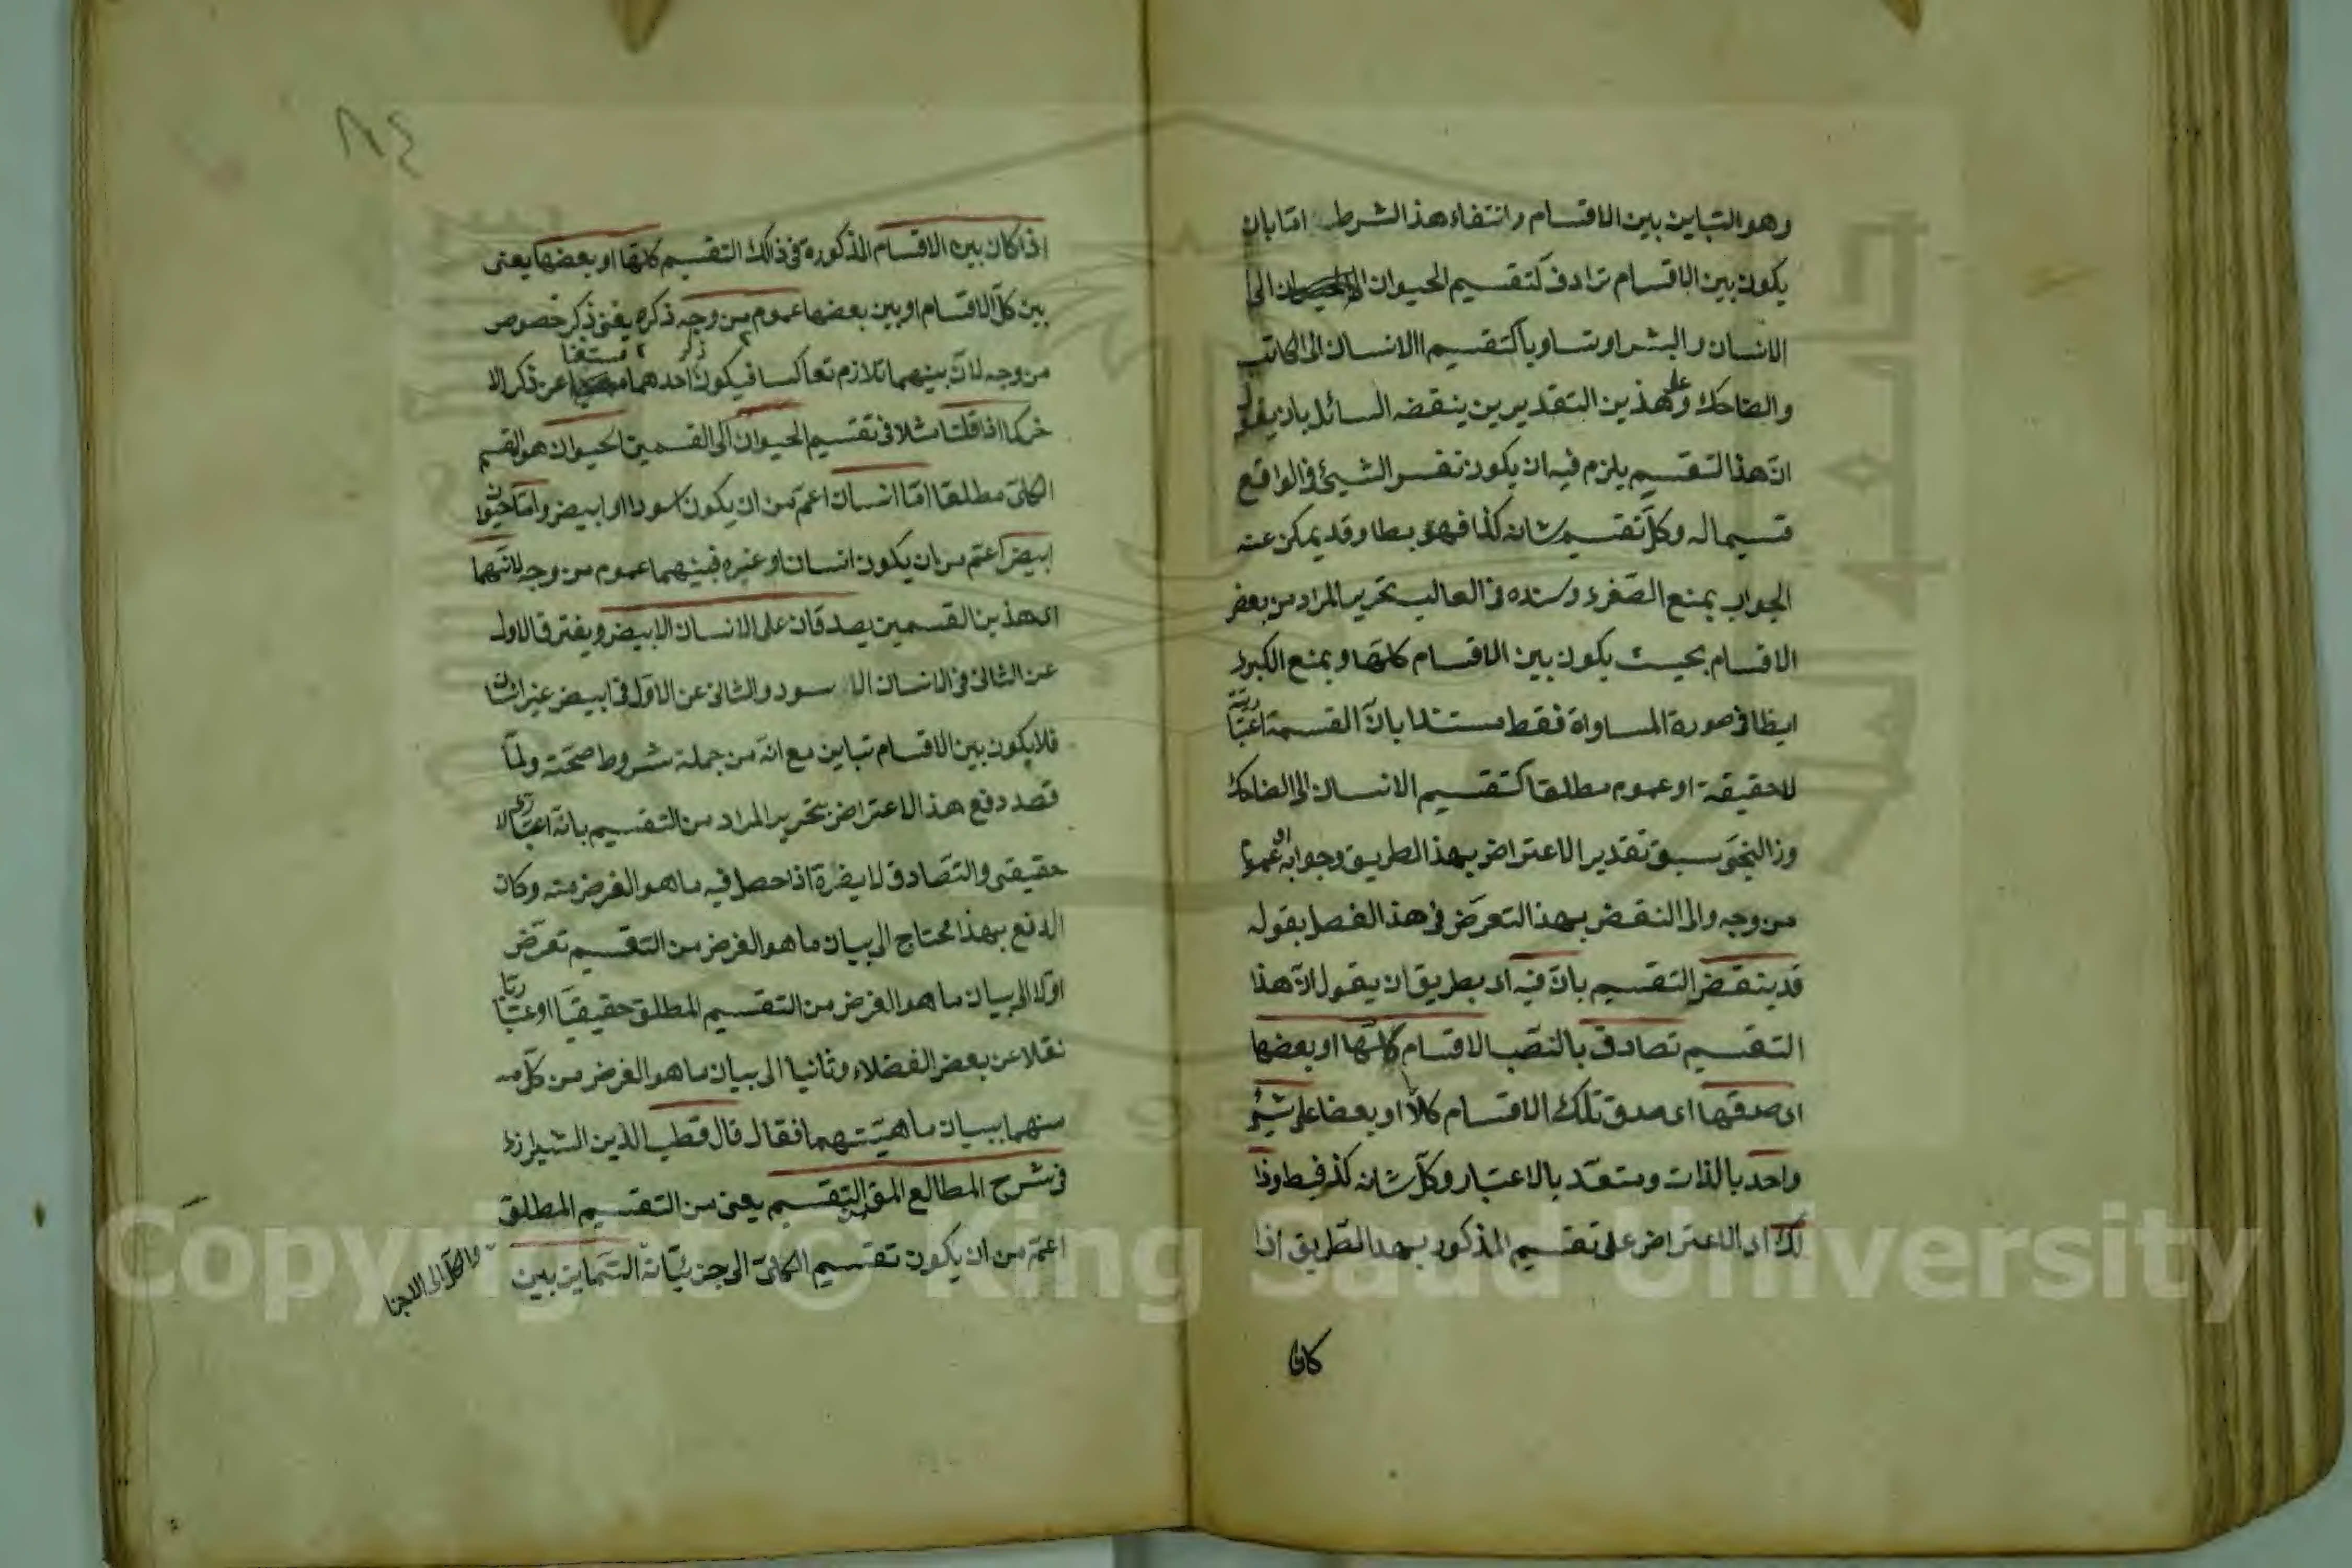 وهو التباين بين الاقسام وانتفاء هذا الشرط امّا بان
يكون بين الاقسام ترادف كتقسيم الحيوان الى
الانسان والبشر او تساويا كتقسيم الانسان الى الكاتب
والضاحك وعلى هذين التقديرين ينقضه السائل بان يقول
انّ هذا التقسيم يلزم فيه ان يكون نفس الشيئ في الواقع
قسيما له وكلّ تقسيم شانه كذا فهو بط وقد يمكن عنه
الجواب بمنع الصّغرى وسنده في الغالب تحرير المراد من بعض
الاقسام بحيث يكون بين الاقسام كلّها ويمنع الكبرى
ايظا في صورة المساواة فقط مستندا بانّ القسمة اعتبارية
لا حقيقة او عموم مطلقا كتقسيم الانسان الى الضاحك
والزنجى سبق تقدير الاعتراض بهذا الطريق وجوابه او عموما
من وجه والى النقض بهذا التعرّض في هذا الفصل بقوله
قد ينقض التقسيم بانّ فيه اى بطريق ان يقول انّ هذا
التقسيم تصادق بالنصّب الاقسام كلّها او بعضها
اى صدقها اى صدق تلك الاقسام كلّا او بعضا على شيئ
واحد بالذات ومتعدّد بالاعتبار وكلّ شانه كذ فبط وذا
لك اى الاعتراض على تقسيم المذكور بهذا الطّريق اذا
كان
٨٤
اذا كان بين الاقسام المذكورة في ذلك التقسيم كلّها او بعضها يعنى
بين كلّ الاقسام او بين بعضها عموم من وجه ذكره يغنى ذكر خصوص
من وجه لانّ بينهما تلازم تعاكسا فيكون ذكر احدهما مستغنا عن ذكر الا
خر كما اذا قلنا مثلا في تقسيم الحيوان الى القسمين الحيوان هو القسم
الكلىّ مطلقا امّا انسان اعمّ من ان يكون اسود او ابيض وامّا حيوان
ابيض اعمّ من ان يكون انسان او غيره فبينهما عموم من وجه لانّهما
اى هذين القسمين يصدقان على الانسان الابيض ويفترق الاول
عن الثانى في الانسان الاسود والثانى عن الاوّل في ابيض غير انسان
فلا يكون بين الاقسام تباين مع انّه من جملة شروط صحّته ولمّا
قصد دفع هذا الاعتراض بتحرير المراد من التقسيم بانّه اعتبارى لا
حقيقى والتّصادق لا يضرّه اذا حصل فيه ما هو الغرض منه وكان
الدفع بهذا محتاج الى بيان ما هو الغرض من التقسيم تعرّض
اوّلا الى بيان ما هو الغرض من التقسيم المطلق حقيقيّا او اعتباريّا
نقلا عن بعض الفضلاء وثانيا الى بيان ما هو الغرض من كلّ
منهما ببيان ماهيّتهما فقال قال قطب الدّين الشيرازى
في شرح المطالع المق التقسيم يعنى من التقسيم المطلق
اعمّ من ان يكون تقسيم الكلىّ الى جزئيّاته التمايز بين
والكلّ الى الاجزا
Copyright © King Saud University